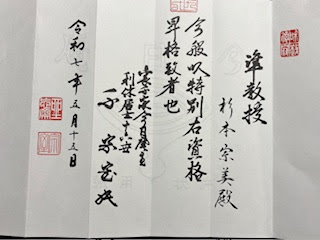 準教授
杉本宗美殿
今般以特別右資格
昇格致者也
裏千家今日庵主
利休居士十六世
千宗室
令和七年五月十五日